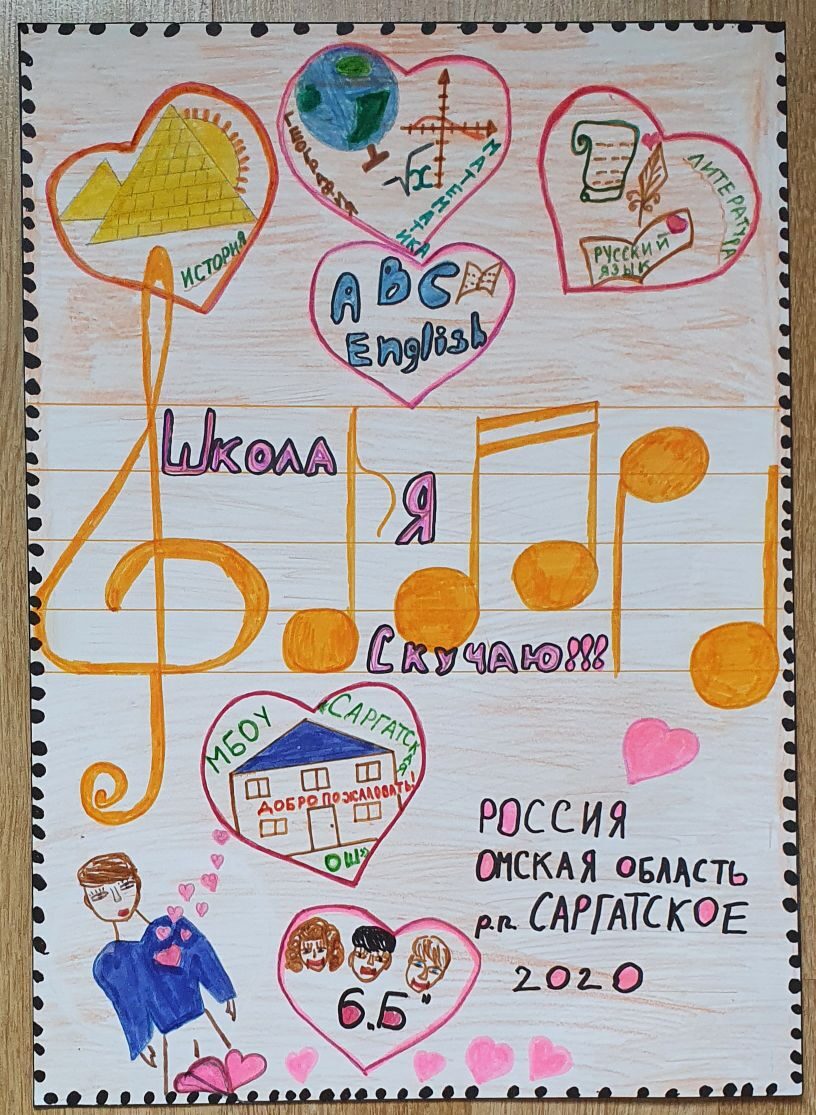 ИСТОРИЯ
ГЕОГРАФИЯ
√x
МАТЕМАТИКА
ЛИТЕРАТУРА
РУССКИЙ
ЯЗЫК
ABC
English
ШКОЛА
Я
СКУЧАЮ!!!
МБОУ «САРГАТСКАЯ
ДОБРО ПОЖАЛОВАТЬ!
ОШ»
РОССИЯ
ОМСКАЯ ОБЛАСТЬ
р.п. САРГАТСКОЕ
2020
6„Б"